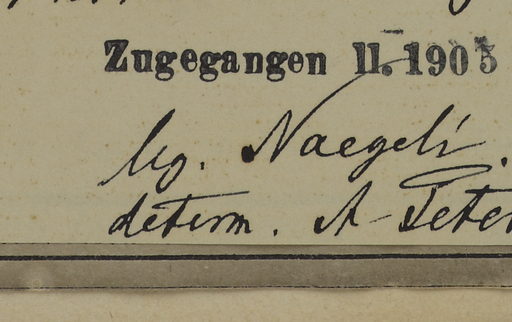 Zugegangen II. 1905
leg. Naegeli.
determ. A Peter